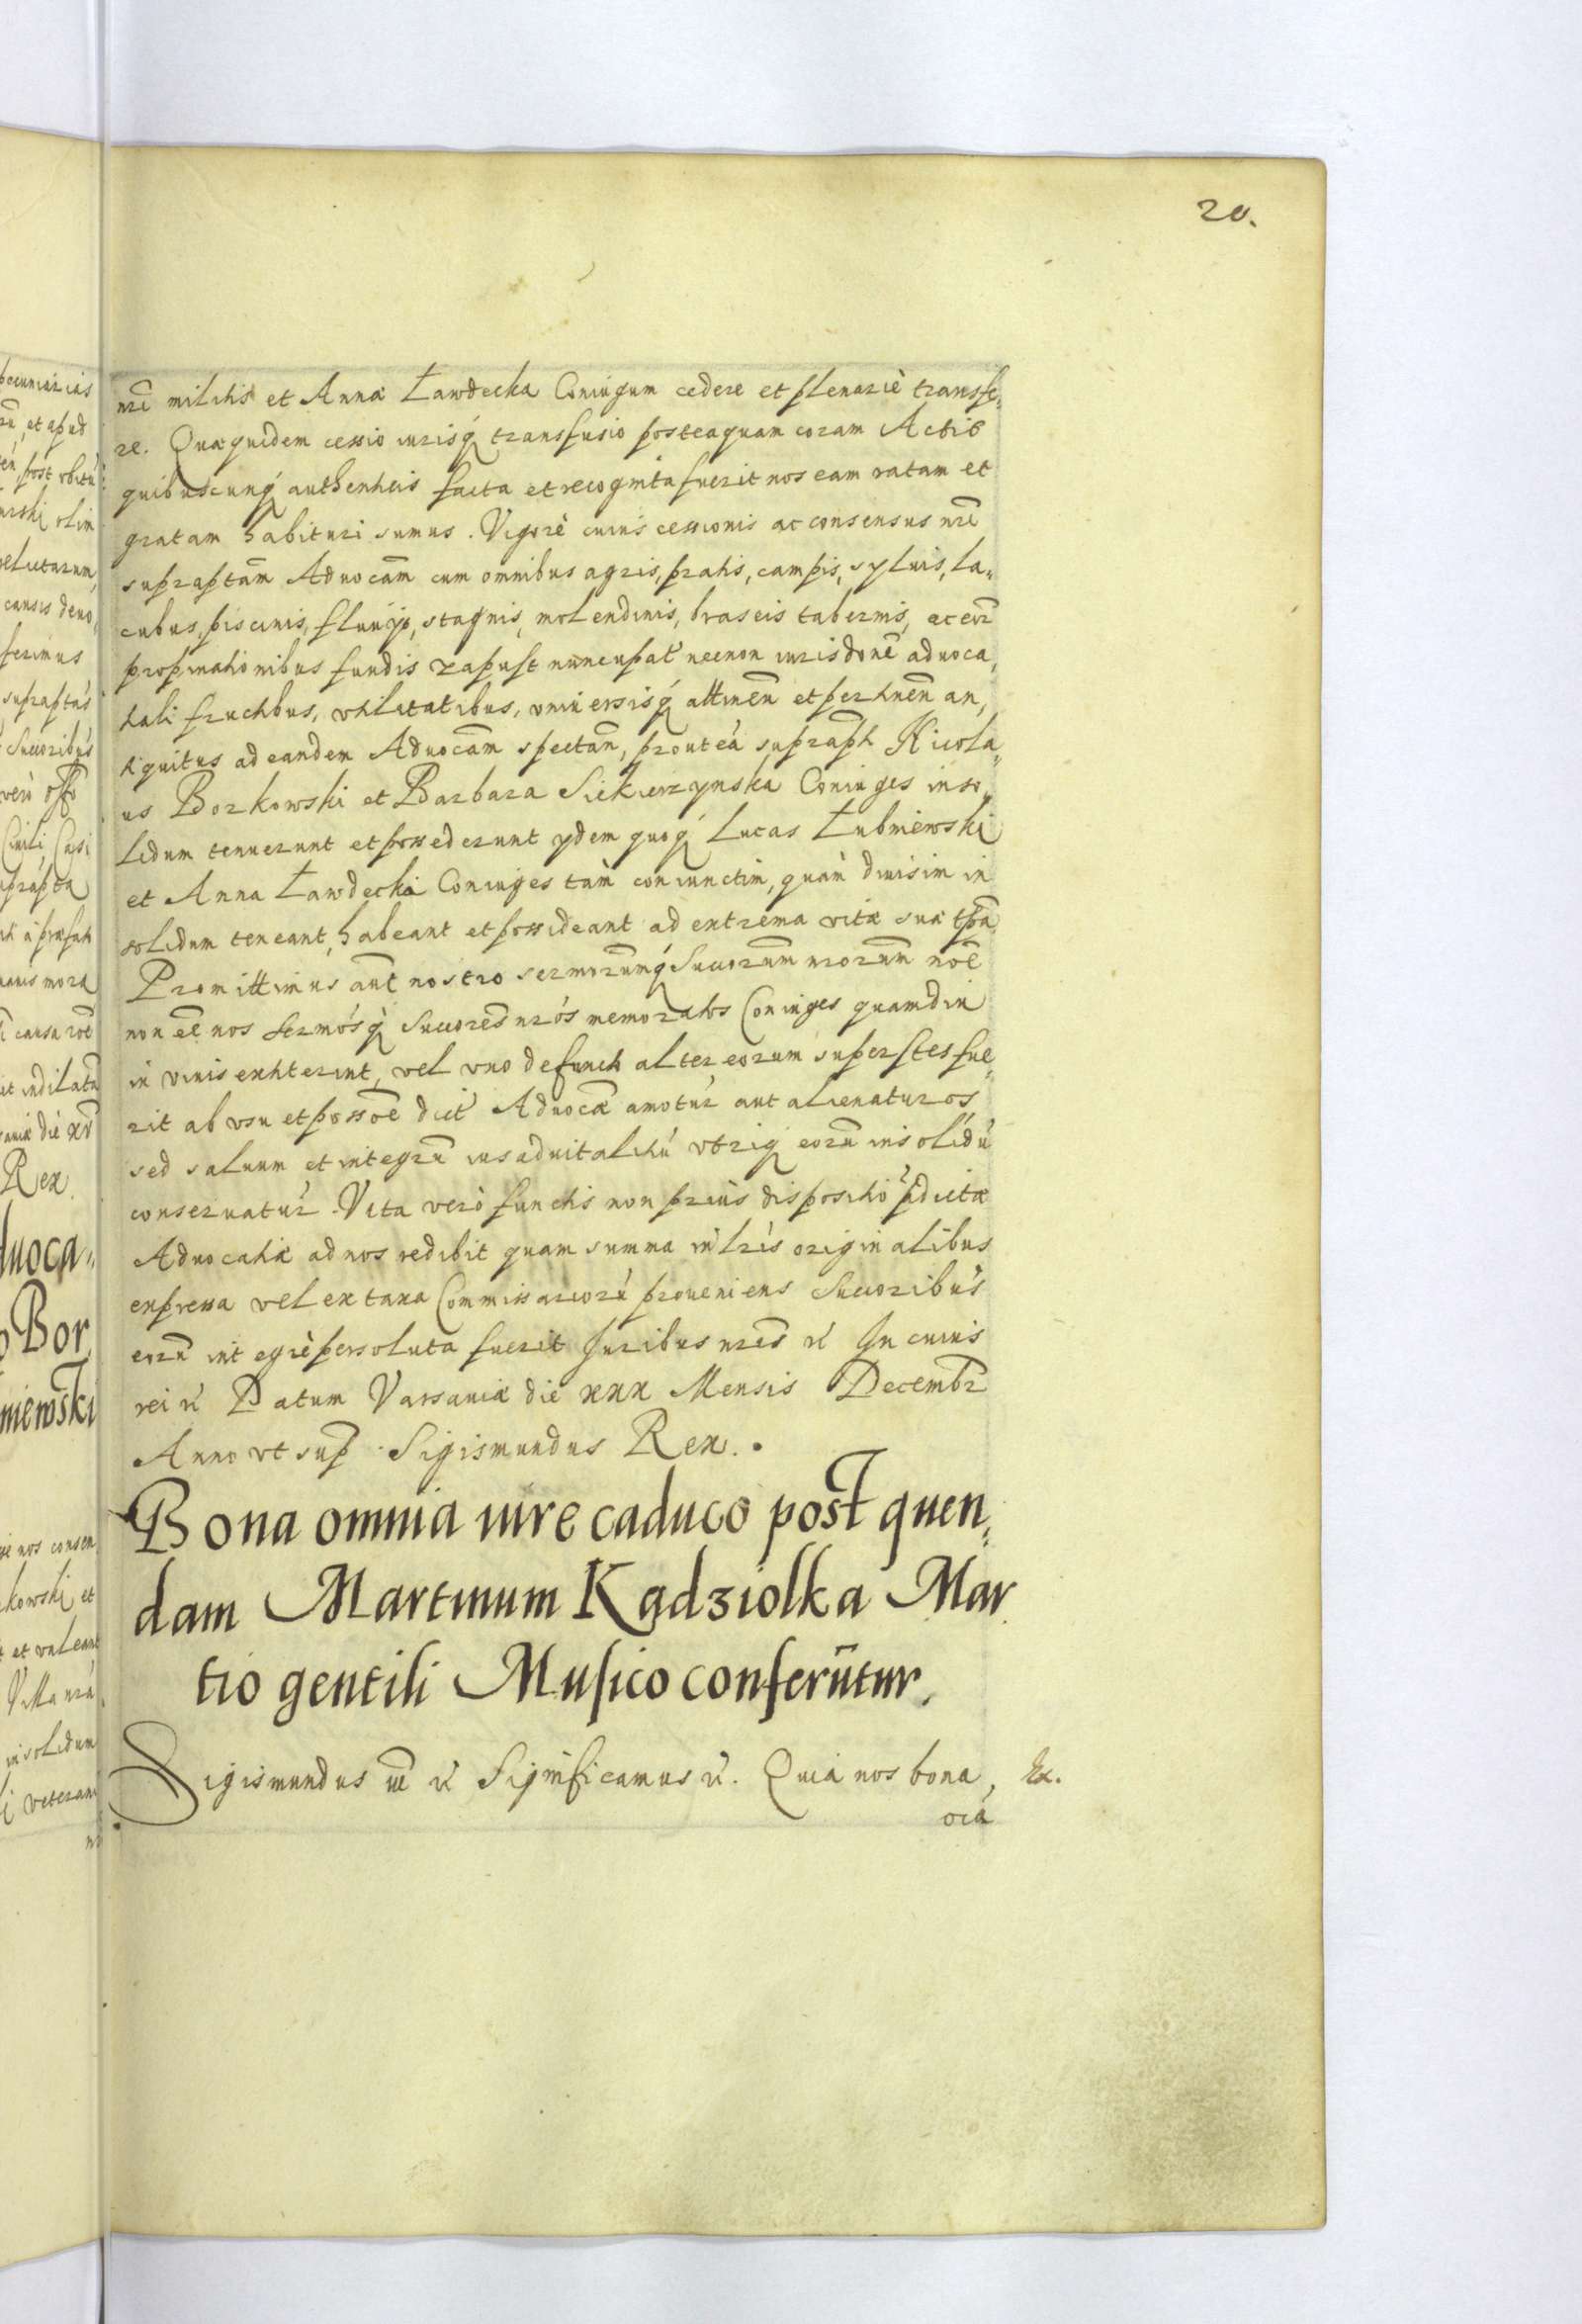 20.
nr̄i militis et Annæ Ławdecka Coniugum cedere et plenariè transfe,
re. Quæquidem cessio iurisq́ transfusio posteaquam coram Actis
quibuscunq́ authenticis facta et recognita fuerit nos eam ratam et
gratam habituri sumus. Vigorè cuius cessionis ac consensus nr̄i
supraptam̄ Aduocam̄ cum omnibus agris, pratis, campis, syluis, la,
cubus, piscinis, fluuijs, stagnis, molendinis, braseis tabernis, ac eor̄
propinationibus fundis zapust nuncupat́ necnon iurisdonē aduoca,
tali fructibus, vtilitatibus, vniuersisq́ attineñ et pertineñ an,
tiquitus ad eandem Aduocam̄ spectañ, prout eà suprapti Nicola,
us Borkowski et Barbara Siekierzynska Coniuges in so,
lidum tenuerunt et possederunt ydem quoq́ Lucas Łubniewski
et Anna Ławdecka Coniuges tàm coniunctim, quàm diuisim in
solidum teneant, habeant et possideant ad extrema vitæ suæ tp̄a
Promittimus aut̄ nostro sermorum̄q́ Succorum̄ nrorum̄ noē
non eē nos sermósq́ Succores̄ nrós memoratos Coniuges quamdiu
in viuis extiterint, vel vno defuncto alter eorum superstes fue,
rit ab vsu et possoē dict́ Aduocǣ amotur̄ aut alienaturos,
sed saluum et integrū ius aduitalitiū vtriq́ eorū in solidū
conseruatur̄. Vita verò functis non priùs dispositio p̄dictæ
Aduocatiæ ad nos redibit quam summa in lr̄is originalibus
expressa vel ex taxa Commissariorū proueniens Succoribus
eorū integrè persoluta fuerit Juribus nr̄is rć In cuius
rei rć Datum Varsauiæ die xxx Mensis Decembr̄
Anno vt sup̄ Sigismundus Rex.
Bona omnia iure caduco post quen,
dam Martinum Kądziolka Mar
tio gentili Musico conferūtur.
Sigismundus iii rć Significamus rć. Quia nos bona,
oia